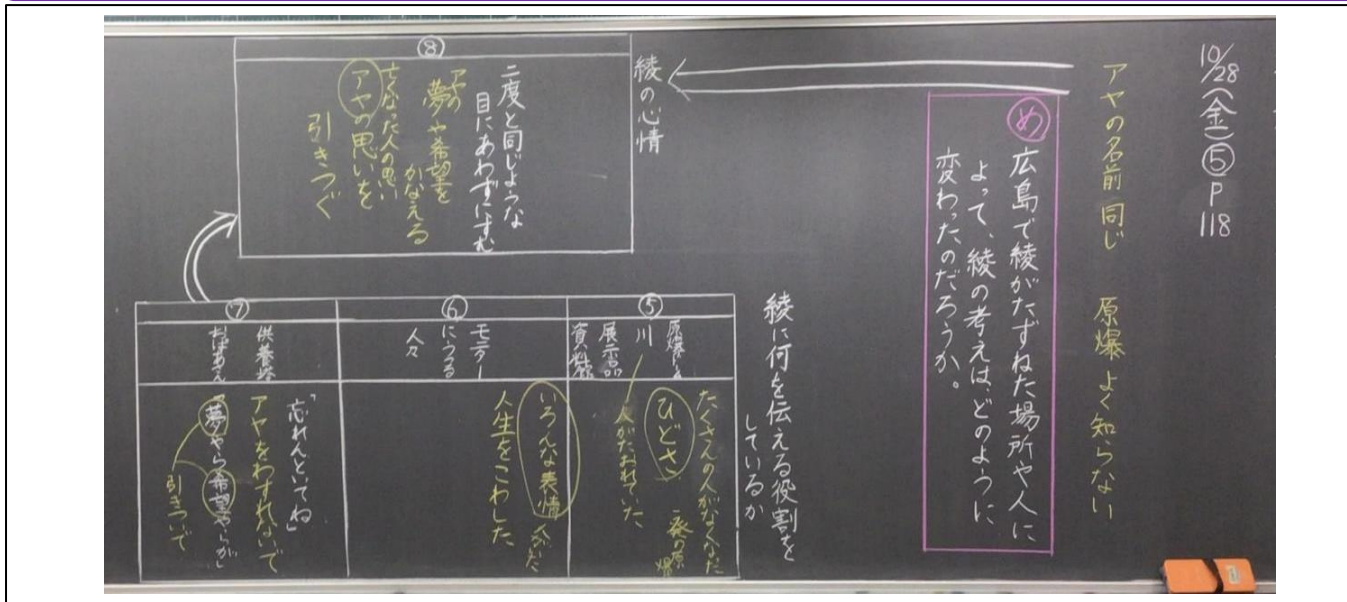 10/28(金)⑤P118
アヤの名前 同じ 原爆 よく知らない
め 広島で綾がたずねた場所や人に
よって、綾の考えは、どのように
変わったのだろうか。
綾の心情
⑧
二度と同じような
目にあわずにすむ
アヤの
夢や希望を
かなえる
亡くなった人の思い
アヤの思いを
引きつぐ
綾に何を伝える役割を
しているか
⑤
原爆ドーム
川
展示品
資料館
たくさんの人がなくなった
ひどさ 一発の原爆
人がたおれていた
⑥
モニター
にうつる
人々
いろんな表情 人がいた
人生をこわした
⑦
供養塔
おばあさん
「忘れんといてね」
アヤをわすれないで
「夢やら希望やらが」
引きついで